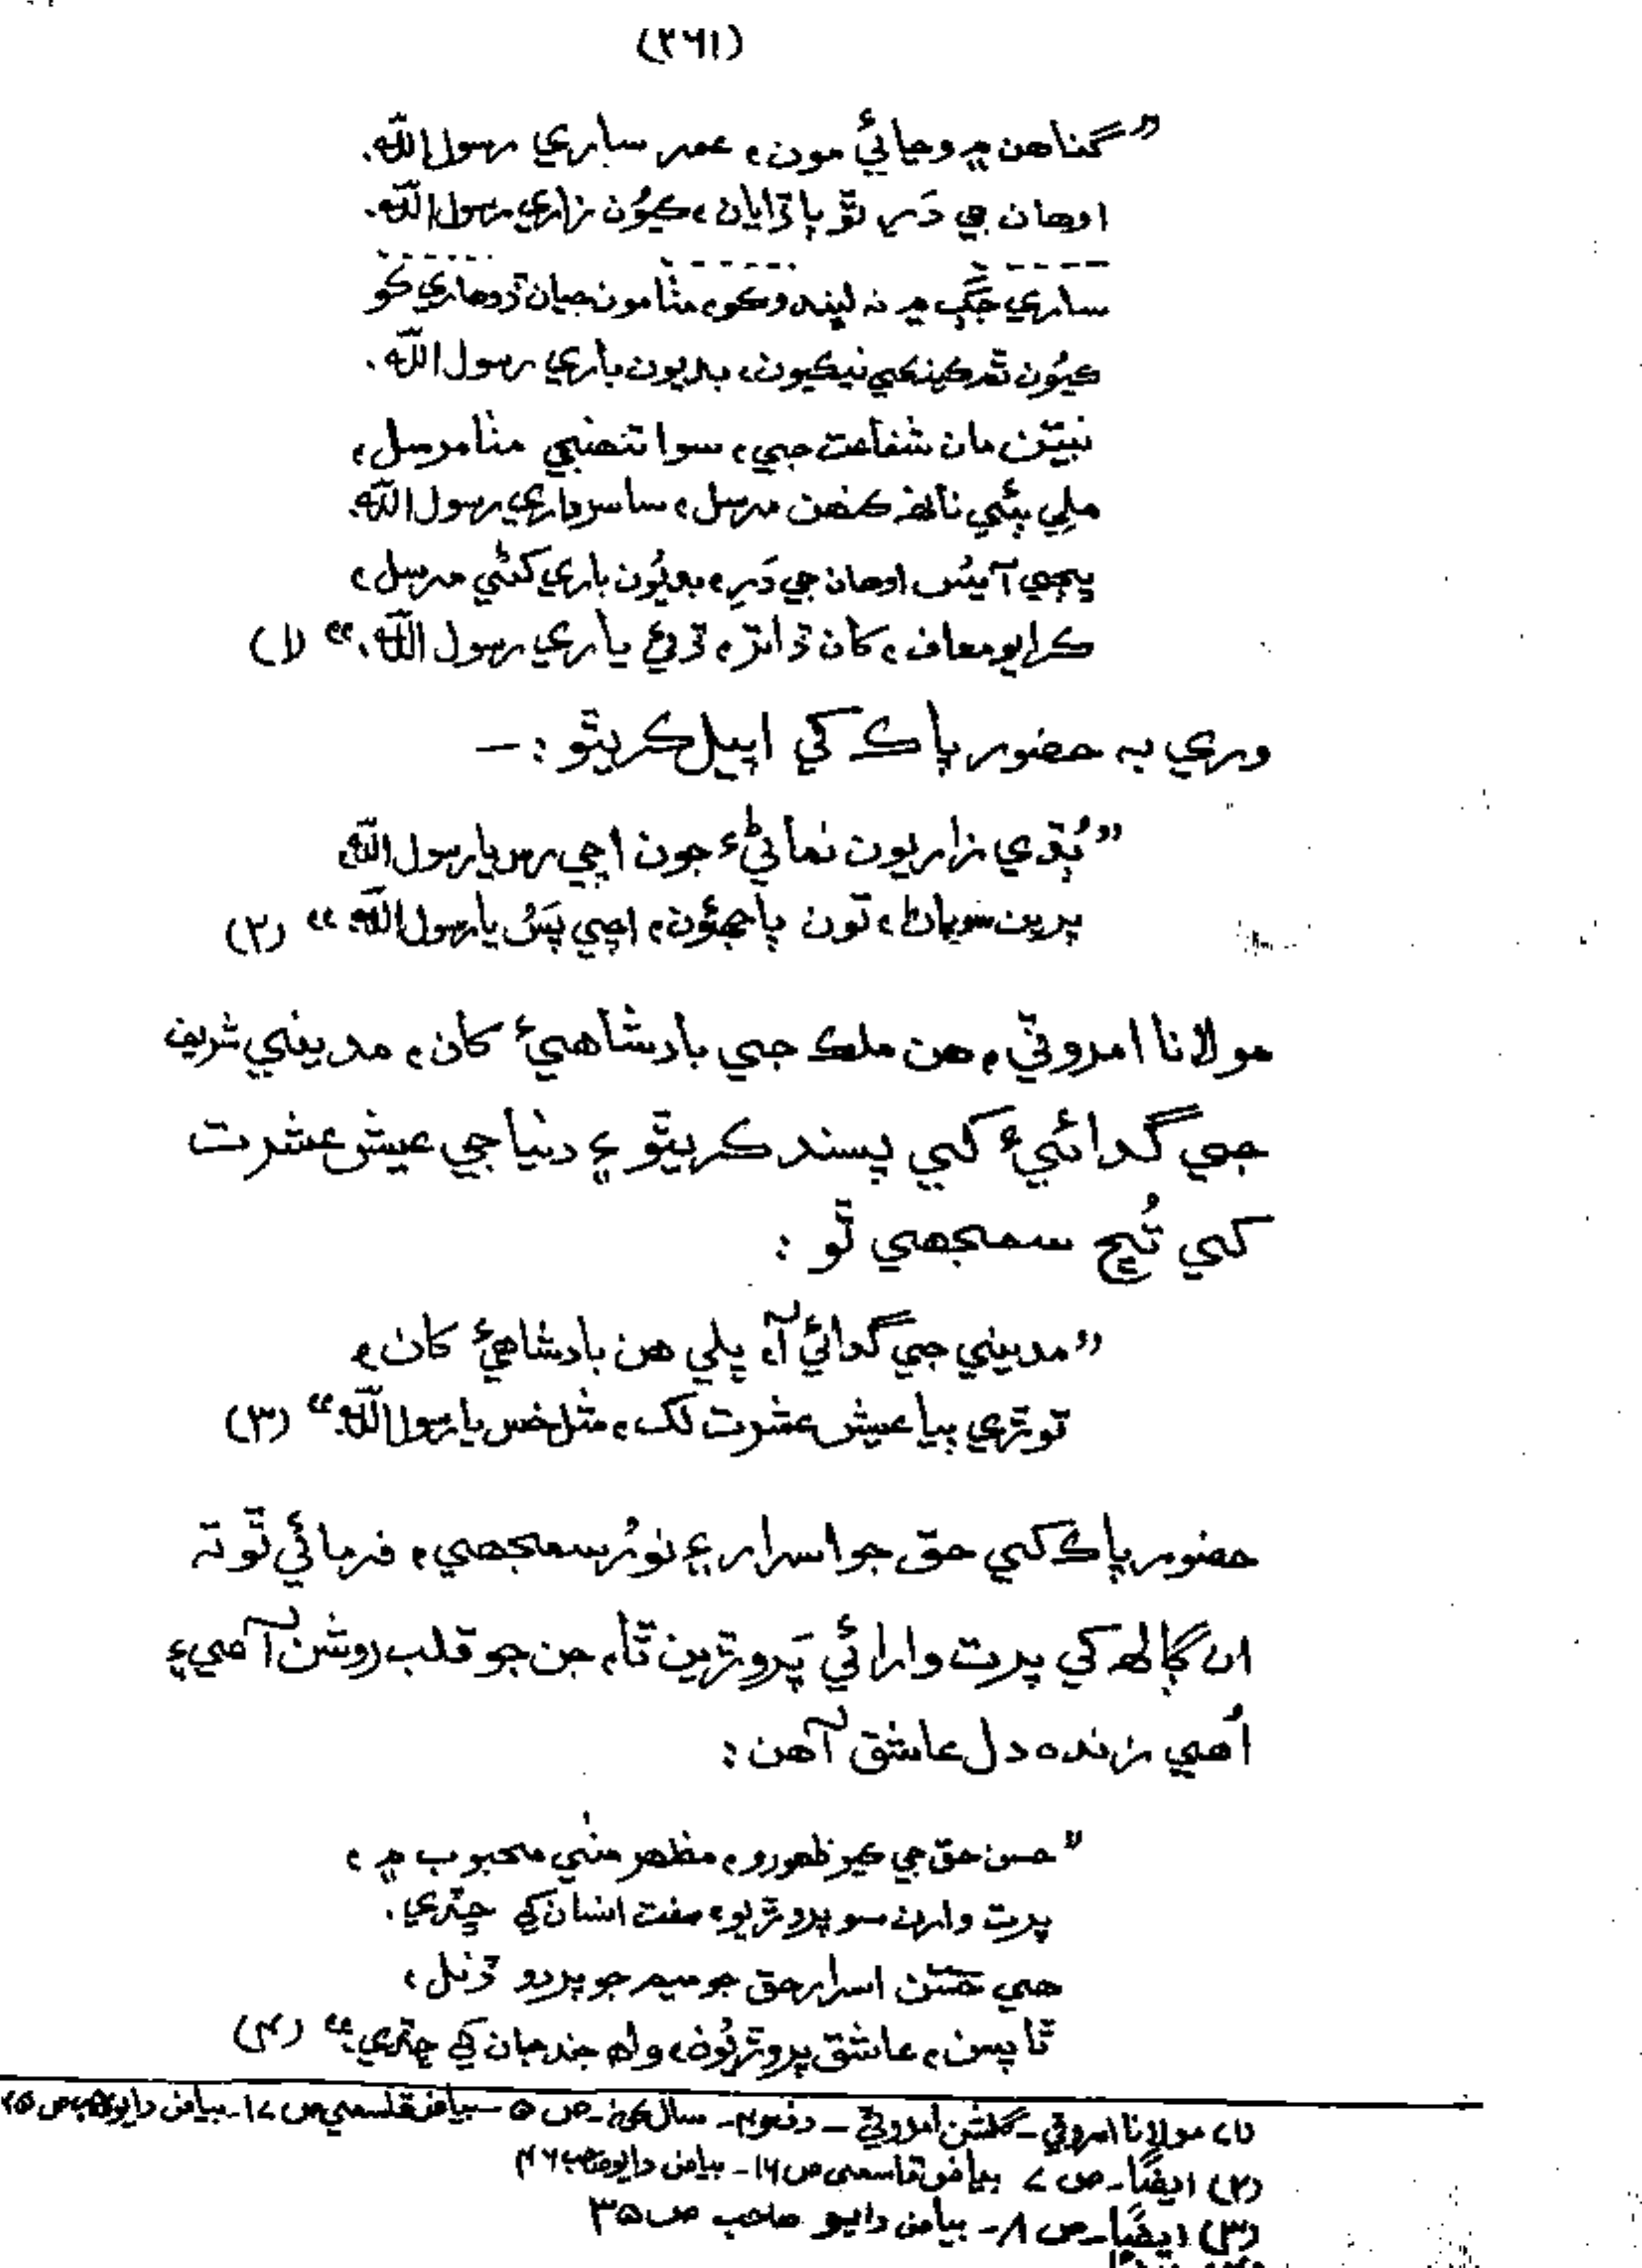 (۳۶۱)
”گناهن ۾ وڃائي مون، عمر ساري رسول الله.
اوهان جي دَر تي پاڻ آيان، ڪيون زاري رسول الله.
ساري جڳ ۾ نه لڀندو ڪو، مٺا مون جيان ڏوهاري ڪو
ڪيون تہ ڪونهي نيڪيون، بديون باري رسول الله.
نبيّن مان شفاعت جي، سوا تنهنجي مٺا مرسل،
ملي ٻئي نانهہ ڪنهن مرسل، سا سرداري رسول الله.
ڀڄي آيس اوهان جي دَرِ، بديون باري کڻي مرسل،
ڪرايو معاف، کان ڏاتر، ڏيئي ياري رسول الله.“ (۱)
وري بہ حضور پاڪ کي اپيل ڪري ٿو :—
”ٻُڌي زاريون نماڻيءَ جون اچي رس يا رسول الله
پرين سڀاڻ، تون پاڄهون، اچي پَسُ يا رسول الله“ (۲)
مولانا امروٽي، هن ملڪ جي بادشاهيءَ کان، مديني شريف
جي گدائيءَ کي پسند ڪري ٿو ۽ دنيا جي عيش عشرت
کي تُڇ سمجهي ٿو :
”مديني جي گدائي آ، ڀلي هن بادشاهيءَ کان،
توڙي ٻيا عيش عشرت لک، مثل خس يا رسول الله“ (۳)
حضور پاڪ کي حق جو اسرار ۽ نورُ سمجهي، فرمائي ٿو تہ
ان ڳالھ کي پرت وارا ئي پَروڙين ٿا، جن جو قلب روشن آهي ۽
اُهي زنده دل عاشق آهن :
”حسن حق جي ڪيو ظهورو، مظهر مٺي محبوب ۾،
پرت وارن سو پروڙيو، صفت انسان کي ڇڏي.
هي حسن اسرار حق جو ميم جو پردو ڏنل،
ٿا پسن، عاشق پروڙيون، ولھ جند جان کي ڇڏي“ (۴)
(۱) مولانا امروٽي - گلشن امروٽي - ص ۵ - بياض قاسمي ص ۱۷ - بياض دايو صاحب ص ۲۵
(۲) ايضًا - ص ۷ بياض قاسمي ص ۱۶ - بياض دايو صاحب ۴۶
(۳) ايضًا - ص ۸ - بياض دايو صاحب ص ۳۵